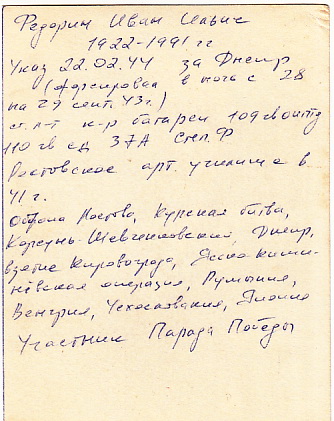 Федорин Иван Ильич
1922-1991 гг
Указ 22.02.44 за Днепр
(форсировал в ночь с 28
на 29 сент. 43 г.)
ст. л-т к-р батареи 109 гв
110 гв сд 37А Степ. Ф
Ростовское арт. училище в
41 г.
Оборона Москвы, Курская битва,
Корсунь-Шевченковский, Днепр,
взятие Кировограда, Ясско-Киши-
нёвская операция, Румыния,
Венгрия, Чехословакия, Япония
Участник Парада Победы